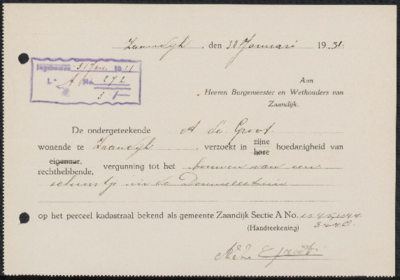 Zaandijk, den 30 Januari 1931
Ingekomen 31 Jan. 1931
No. 272
Aan
Heeren Burgemeester en Wethouders van
Zaandijk.
De ondergeteekende A de Groot
wonende te Zaandijk, verzoekt in zijne
hare hoedanigheid van
eigenaar,
rechthebbende, vergunning tot het bouwen van een
schuurtje in de
op het perceel kadastraal bekend als gemeente Zaandijk Sectie A No.
(Handteekening)
de Groot